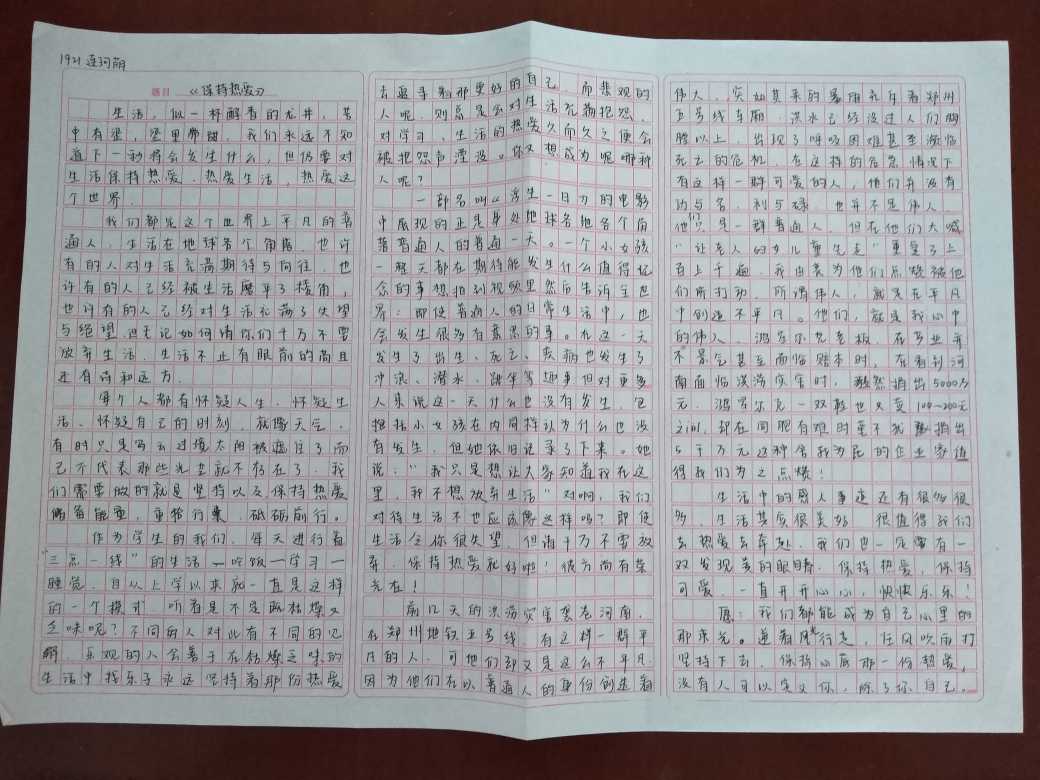 1921 连珂萌
题目 《保持热爱》
生活,似一杯醇香的龙井,苦
中有涩,涩里带甜,我们永远不知
道下一秒将会发生什么,但仍要对
生活保持热爱.热爱生活,热爱这
个世界.
我们都是这个世界上平凡的普
通人,生活在地球各个角落.也许
有的人对生活充满期待与向往,也
许有的人已经被生活磨平了棱角,
也许有的人已经对生活充满了失望
与绝望.但无论如何请你们千万不要
放弃生活.生活不止有眼前的苟且
还有诗和远方.
每个人都有怀疑人生、怀疑生
活、怀疑自己的时刻,就像天气,
有时只是乌云过境太阳被遮住了而
已不代表那些光芒就不存在了,我
们需要做的就是坚持以及保持热爱
储备能量,重整行囊,砥砺前行。
作为学生的我们,每天进行着
"三点一线"的生活一吃饭一学习一
睡觉.自从上学以来就一直是这样
的一个模式.听着是不是既枯燥又
乏味呢?不同的人对此有不同的见
解.乐观的人会善于在枯燥乏味的
生活中找乐子永远坚持着那份热爱
去追寻着那更好的自己.而悲观的
人呢.则总是会对生活充满抱怨,
对学习、生活的热爱久而久之便会
被抱怨声湮没。你又想成为呢哪种
人呢?
一部名叫《浮生一日》的电影
中展现的正是身处地球各地各个角
落普通人的普通一天。一个小女孩
一整天都在期待能发生什么值得纪
念的事想拍到视频里然后告诉全世
界:即使普通人的日常生活中,也
会发生很多有意思的事。在这一天
发生了出生、死亡、疾病也发生了
冲浪、潜水、跳伞等趣事但对更多
人来说这一天什么也没有发生,包
括拍小女孩在内同样认为什么也没
有发生,但她依旧记录了下来。她
说:"我只是想让大家知道我在这
里,我不想放弃生活"对啊,我们
对待生活不也应该像这样吗?即使
生活令你很失望.但请千万不要放
弃.保持热爱就好啦!彼方尚有荣
光在!
前几天的洪涝灾害袭卷河南,
在郑州地铁五号线,有这样一群平
凡的人.可他们却又是这么不平凡.
因为他们在以普通人的身份创造着
伟大.突如其来的暴雨充斥着郑州
五号线车厢.洪水已经没过人们胸
膛以上,出现了呼吸困难甚至濒临
死亡的危机,在这样的危急情况下
有这样一群可爱的人,他们并没有
功与名,利与禄,也并不是伟人.
他们只是一群普通人.但在他们大喊
"让老人妇女儿童先走"重复了上
百上千遍.我由衷为他们点赞被他
们所打动.所谓伟人,就是在平凡
中创造不平凡。他们,就是我心中
的伟人.鸿星尔克老板,在企业并
不景气甚至面临赔本时,在看到河
南面临洪涝灾害时,毅然捐出5000万
元.鸿星尔克一双鞋也只卖100~200元
之间,却在同胞有难时毫不犹豫捐出
5千万元这种舍我为民的企业家值
得我们为之点赞!
生活中的感人事迹还有很多很
多,生活其实很美好,很值得我们
去热爱去奔赴.我们也一定要有一
双发现美的眼睛.保持热爱,保持
可爱.一直开开心心,快快乐乐!
愿:我们都能成为自己心里的
那束光。逆着风行走,任风吹雨打
坚持下去.保持心底那一份热爱,
没有人可以定义你,除了你自己.